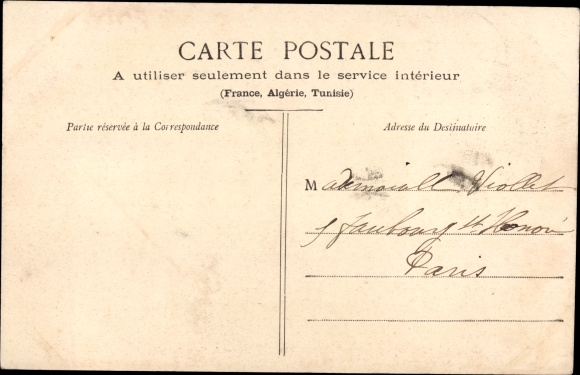 CARTE POSTALE
A utiliser seulement dans le service intérieur
(France, Algérie, Tunisie)
Partie réservée à la Correspondance
Adresse du Destinataire
Mademoiselle Viollet
Faubourg St Honoré
Paris